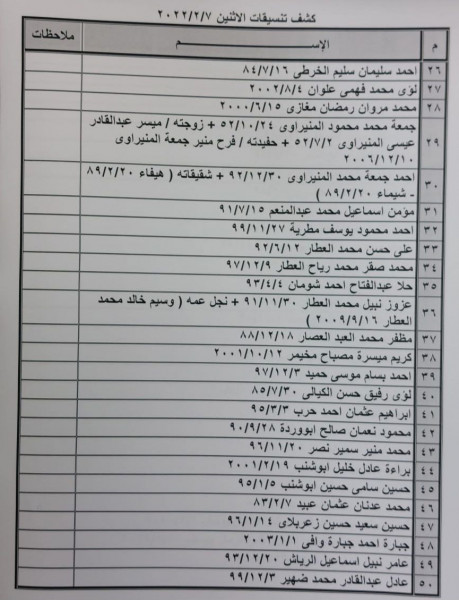 كشف تنسيقات الاثنين ٢٠٢٢/٢/٧
م الإســـم ملاحظات
٢٦ احمد سليمان سليم الخرطي ٨٤/٧/١٦
٢٧ لؤى محمد فهمى علوان ٢٠٠٢/٨/٤
٢٨ محمد مروان رمضان مغازى ٢٠٠٠/٦/١٥
٢٩ جمعة محمد محمود المنيراوى ٥٢/١٠/٢٤ + زوجته / ميسر عبدالقادر
عيسى المنيراوى ٥٢/٧/٢ + حفيدته / فرح منير جمعة المنيراوى
٢٠٠٦/١٢/١٠
٣٠ احمد جمعة محمد المنيراوى ٩٢/١٢/٣٠ + شقيقاته ( هيفاء ٨٩/٢/٢٠
- شيماء ٨٩/٢/٢٠ )
٣١ مؤمن اسماعيل محمد عبدالمنعم ٩١/٧/١٥
٣٢ احمد محمود يوسف مطرية ٩٩/١١/٢٧
٣٣ على حسن محمد العطار ٩٢/٦/١٢
٣٤ محمد صقر محمد رياح العطار ٩٧/١٢/٩
٣٥ حلا عبدالفتاح احمد شومان ٩٣/٤/٤
٣٦ عزوز نبيل محمد العطار ٩١/١١/٣٠ + نجل عمه ( وسيم خالد محمد
العطار ٢٠٠٩/٩/١٦ )
٣٧ مظفر محمد العبد العصار ٨٨/١٢/١٨
٣٨ كريم ميسرة مصباح مخيمر ٢٠٠١/١٠/١٢
٣٩ احمد بسام موسى حميد ٩٧/١٢/٣
٤٠ لؤى رفيق حسن الكيالى ٨٥/٧/٣٠
٤١ ابراهيم عثمان احمد حرب ٩٥/٣/٣
٤٢ محمود نعمان صالح ابووردة ٩٠/٩/٢٨
٤٣ محمد منير سمير نصر ٩٦/١١/٢٠
٤٤ براءة عادل خليل ابوشنب ٢٠٠١/٢/١٩
٤٥ حسين سامى حسين ابوشنب ٩٥/١/٥
٤٦ محمد عدنان عثمان عبيد ٨٣/٢/٧
٤٧ حسين سعيد حسين زعربلاى ٩٦/١/١٤
٤٨ جبارة احمد جبارة وافى ٢٠٠٣/١/١
٤٩ عامر نبيل اسماعيل الرياش ٩٣/١٢/٢٠
٥٠ عادل عبدالقادر محمد ضهير ٩٩/١٢/٣